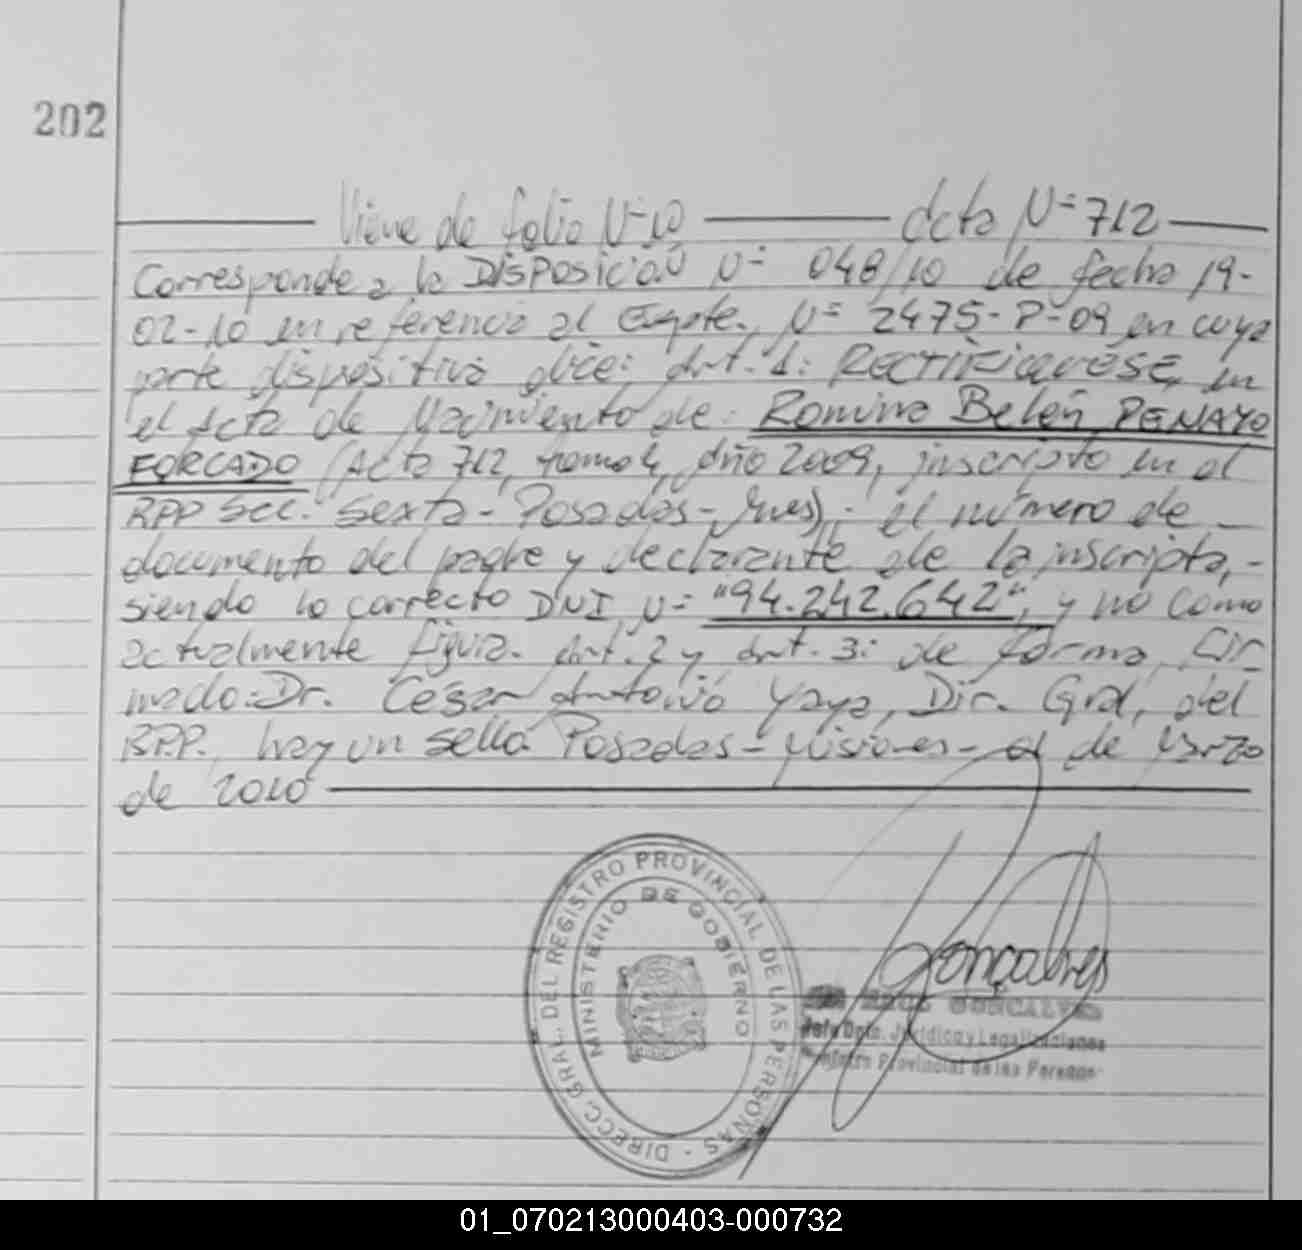 202
Viene de folio N=10 Acta N=712
Corresponde a la DISPOSICIÓN N= 048/10 de fecha 19-
02-10 en referencia al Expte. N= 2475-P-09 en cuya
parte dispositiva dice: Art. 1: RECTIFIQUESE, en
el Acta de Nacimiento de: Romina Belén PENAYO
FORCADO (Acta 712, tomo 4, Año 2009, inscripto en el
RPP Sec. Sexta - Posadas - Mnes), el número de -
documento del padre y declarante de la inscripta, -
siendo lo correcto DNI N= "94.242.642", y no como
actualmente figura. Art. 2 y Art. 3: de forma, Fir-
mado: Dr. César Antonio Yaya, Dir. Gral, del
RPP. hay un sello Posadas - Misiones - de Marzo
de 2010
DIRECC. GRAL. DEL REGISTRO PROVINCIAL DE LAS PERSONAS -
MINISTERIO DE GOBIERNO
Gonçalves
GONCALVES
Jefe Dpto. Jurídico y Legalizaciones
Registro Provincial de las Personas
01_070213000403-000732